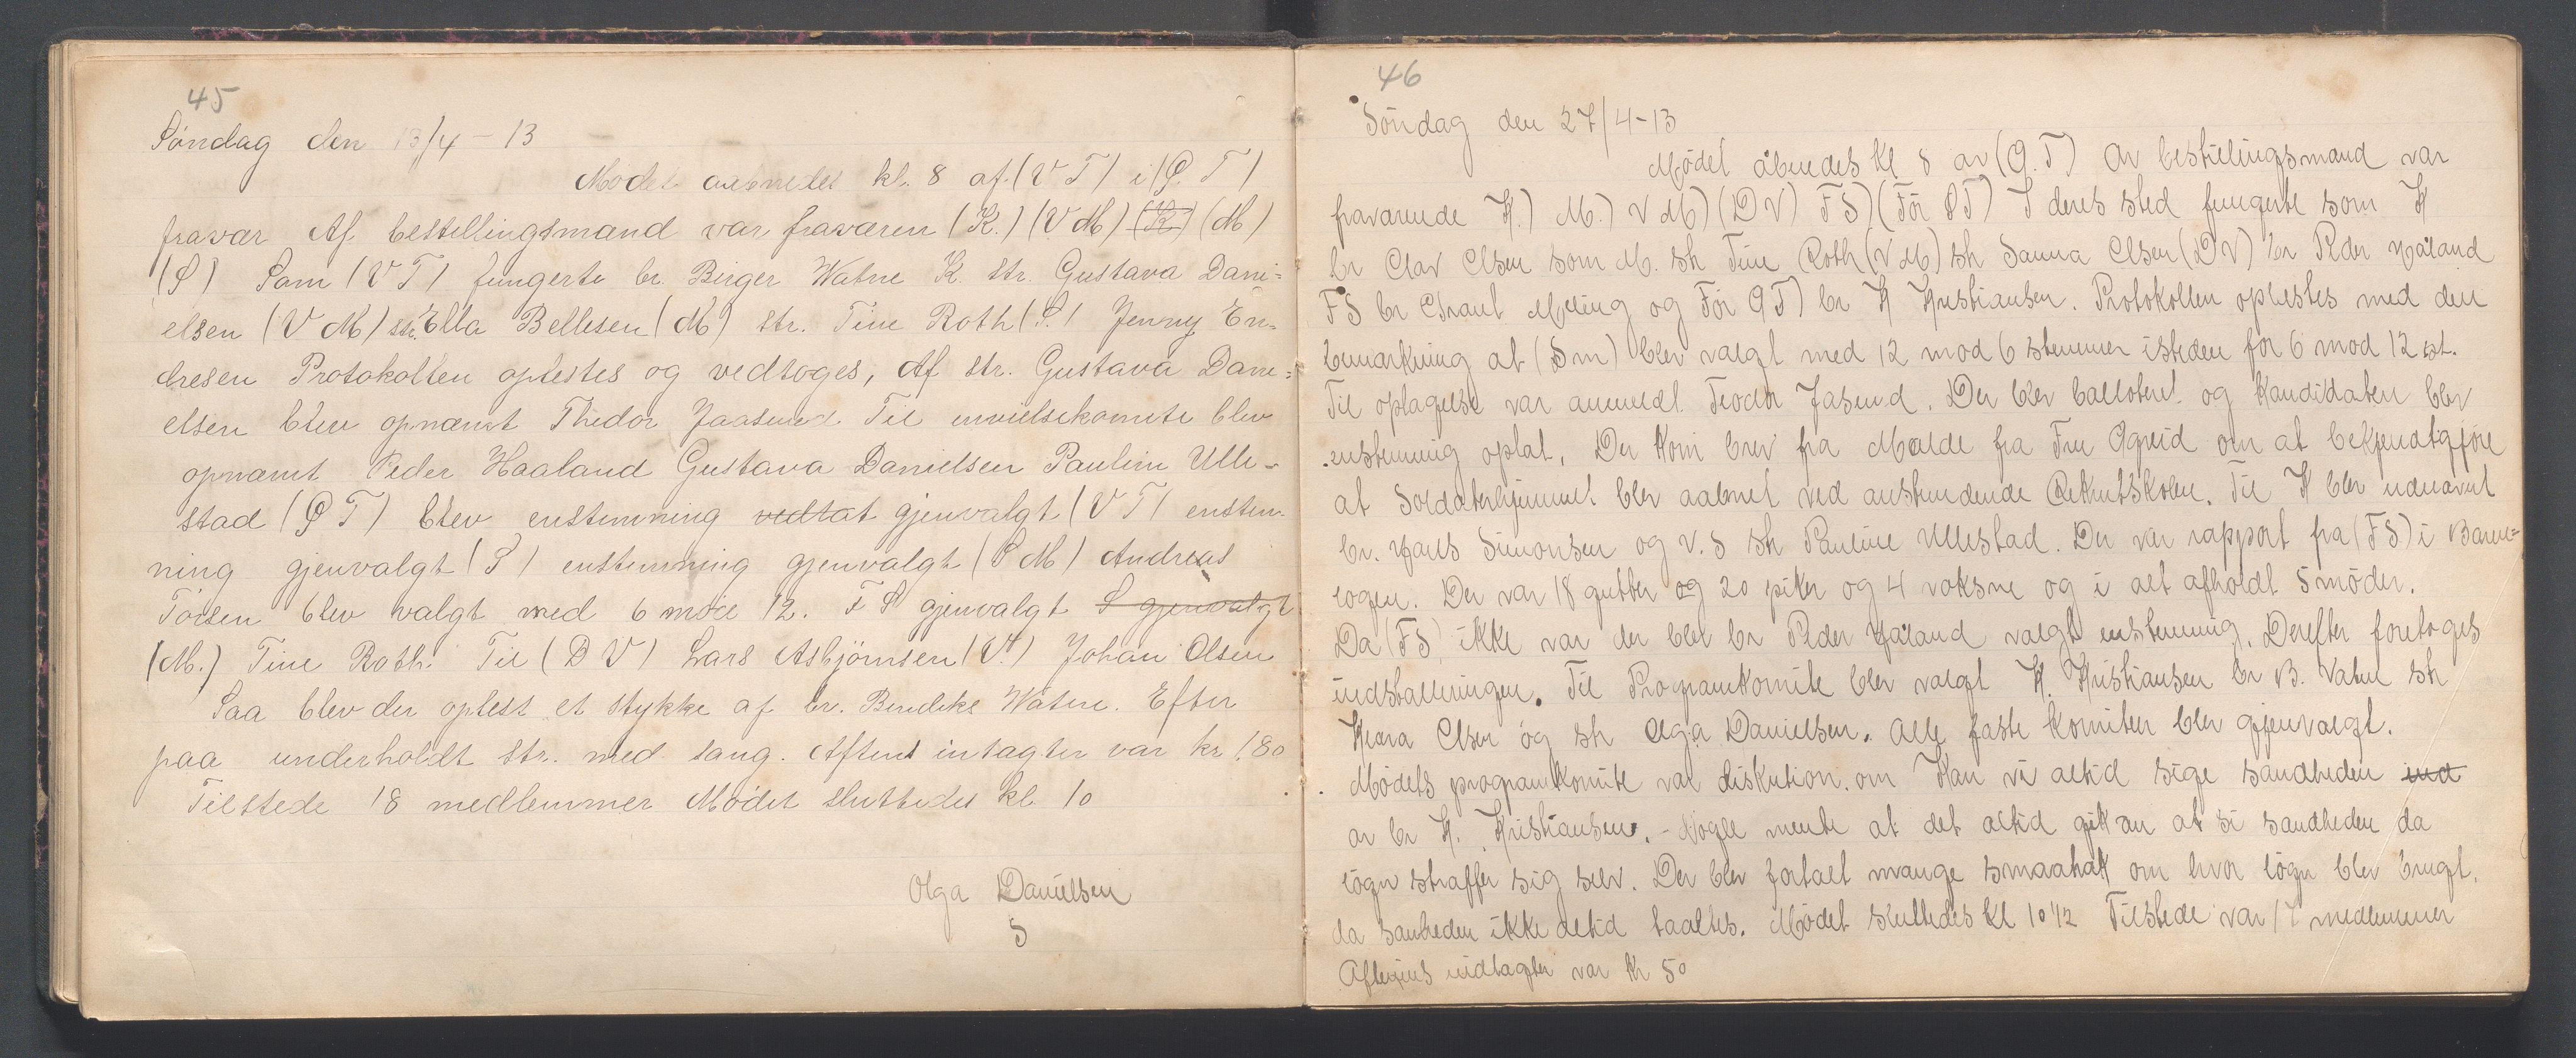 45
Søndag den 13/4 - 13
Mødet aabnedes kl. 8 af (V T) i (Q. T)
fravær Af bestillingsmænd var fraværen (K.) (V M) (K) (M)
(S) Som (V T) fungerte br. Birger Watne K. str. Gustava Dani=
elsen (V M) str. Ella Bellesen (M) str. Tine Roth (S.) Jenny En=
dresen Protokollen oplestes og vedtoges, Af str. Gustava Dani=
elsen blev opnæmt Thedor Jaasund Til invielsekomite blev
opnæmt Peder Haaland Gustava Danielsen Pauline Ulle=
stad (Q T) blev enstemning vedtat gjenvalgt (V T) enstem
ning gjenvalgt (S) enstemning gjenvalgt (S M) Andreas
Torsen blev valgt med 6 mode 12. F S gjenvalgt S gjenvalgt
(M.) Tine Roth. Til (D V) Lars Asbjörnsen (V.) Johan Olsen
Saa blev der oplest et stykke af br. Bendike Watne. Efter
paa underholdt str. med sang. Aftens intagter var kr 1.80
Tilstede 18 medlemmer Mødet sluttedes kl. 10
Olga Danielsen
S
46
Söndag den 27/4-13
Mödet åbnedes Kl 8 av (Q.T) Av bestillingsmænd var
fraværende K.) M.) V M) (D V) F S) (For Q T) I deres sted fungerte som K
br Olav Olsen som M. str Tine Roth (V M) str Sanna Olsen (D V) br Peder Håland
F S br Traul Melling og For Q T) br K Kristiansen. Protokollen oplestes med den
bemærkning at (S m) blev valgt med 12 mod 6 stemmer isteden for 6 mod 12 st.
Til optagelse var anmeldt Teodor Jasund. Der blev balloteret og Kandidaten blev
enstemmig optat. Der kom brev fra Molde fra Fru Ogreid om at bekjendtgjöre
at Soldaterhjemmet blev aabnet ved anstundende Rekrutskolen. Til K blev udnævnt
br. Hans Simonsen og V. S str Pauline Ullestad. Der var rapport fra (F S) i Barne=
logen. Der var 18 gutter og 20 piker og 4 voksne og i alt afholdt 5 möder.
Da (F S) ikke var der blev br Peder Håland valgt enstemmig. Derefter foretoges
indstalleringen. Til Programkomite blev valgt K. Kristiansen br B. Vatne str
Klara Olsen og str Olga Danielsen. Alle faste komiteer blev gjenvalgt.
Mödets programkomite var diskution om Kan vi altid sige sandheden ind
av br K. Kristiansen. Nogle mente at det altid gik an at si sandheden da
lögn straffer sig selv. Der blev fortalt mange smaatræk om hvor lögn blev brugt.
da sanheden ikke altid taaltes. Mödet sluttedes Kl 10 1/2 Tilstede var 17 medlemmer
Aftenens indtagter var Kr 50